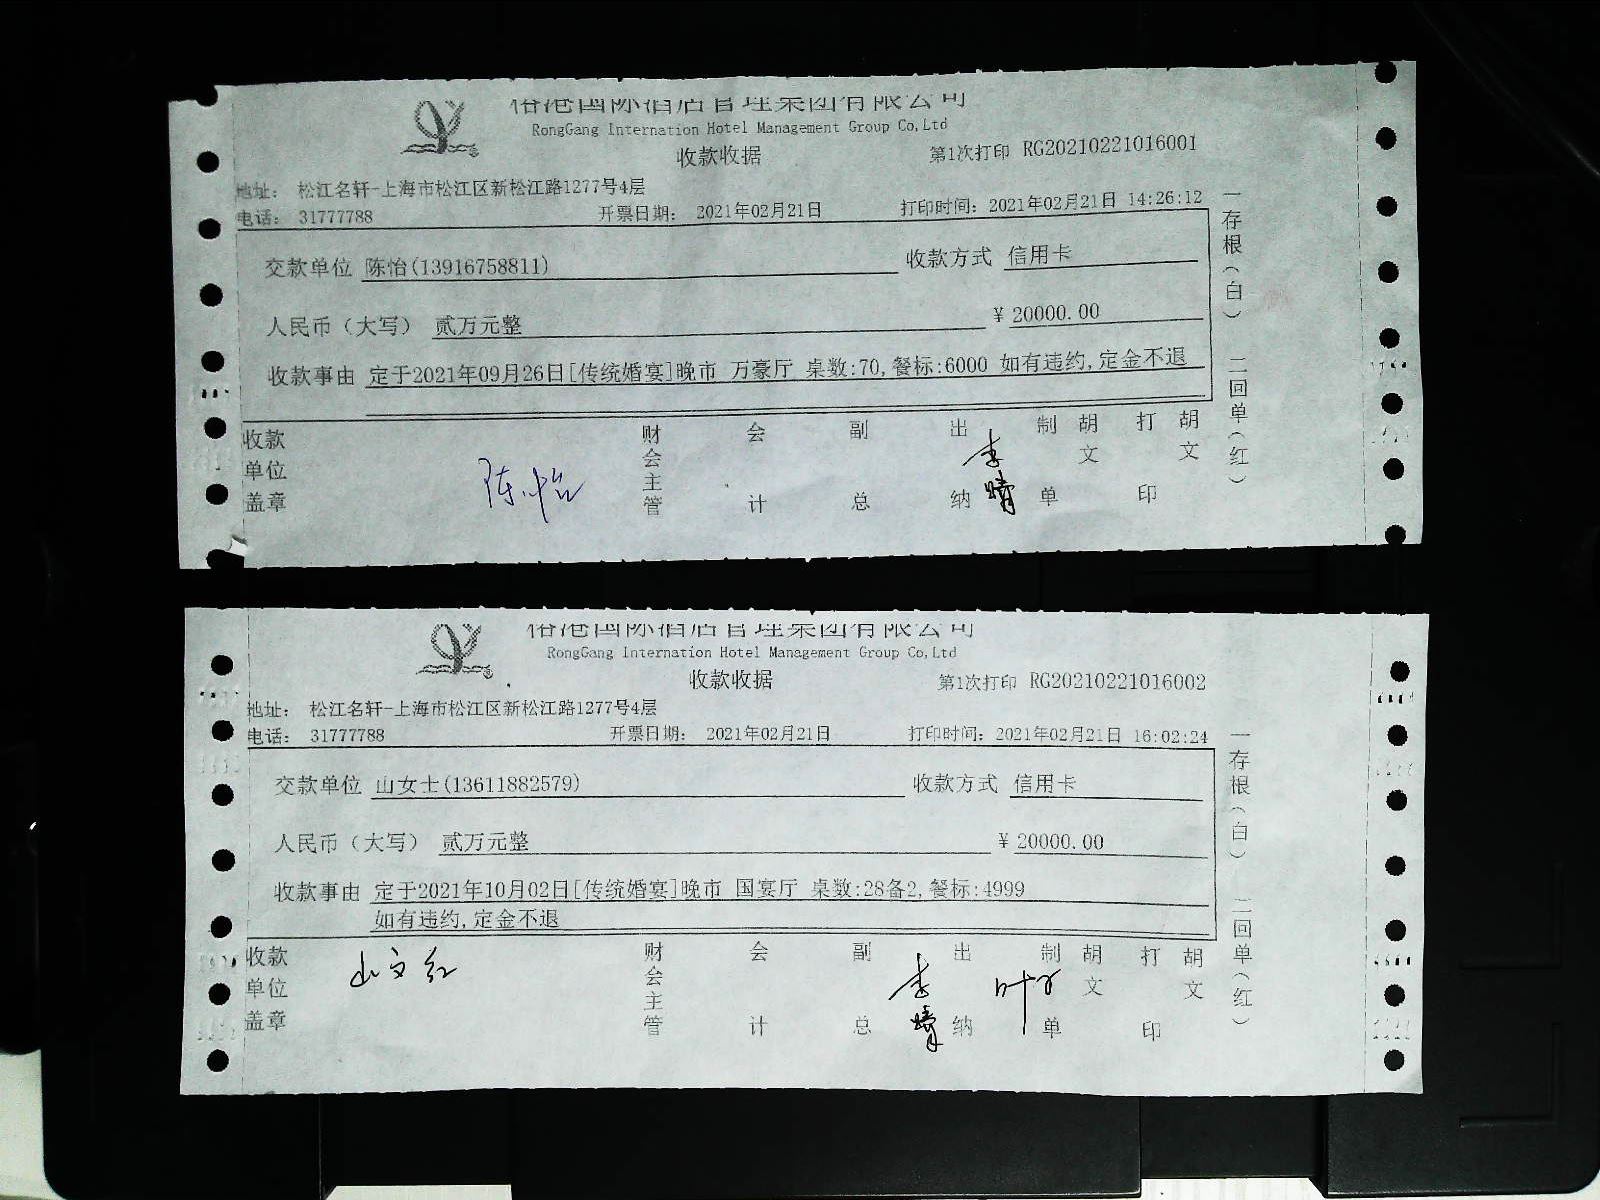 国际酒店管理集团有限公司
RongGang Internation Hotel Management Group Co,Ltd
收款收据
第1次打印 RG20210221016001
地址： 松江名轩-上海市松江区新松江路1277号4层
电话： 31777788 开票日期： 2021年02月21日 打印时间：2021年02月21日 14:26:12
交款单位 陈怡(13916758811) 收款方式 信用卡
人民币（大写） 贰万元整 ￥20000.00
收款事由 定于2021年09月26日[传统婚宴]晚市 万豪厅 桌数:70,餐标:6000 如有违约,定金不退
收款单位盖章 陈怡 财会主管 会计 副总 出纳 李 制单 胡文 打印 胡文
一存根（白） 二回单（红）
国际酒店管理集团有限公司
RongGang Internation Hotel Management Group Co,Ltd
收款收据
第1次打印 RG20210221016002
地址： 松江名轩-上海市松江区新松江路1277号4层
电话： 31777788 开票日期： 2021年02月21日 打印时间：2021年02月21日 16:02:24
交款单位 山女士(13611882579) 收款方式 信用卡
人民币（大写） 贰万元整 ￥20000.00
收款事由 定于2021年10月02日[传统婚宴]晚市 国宴厅 桌数:28备2,餐标:4999
如有违约,定金不退
收款单位盖章 山文红 财会主管 会计 副总 李 出纳 叶 制单 胡文 打印 胡文
一存根（白） 二回单（红）